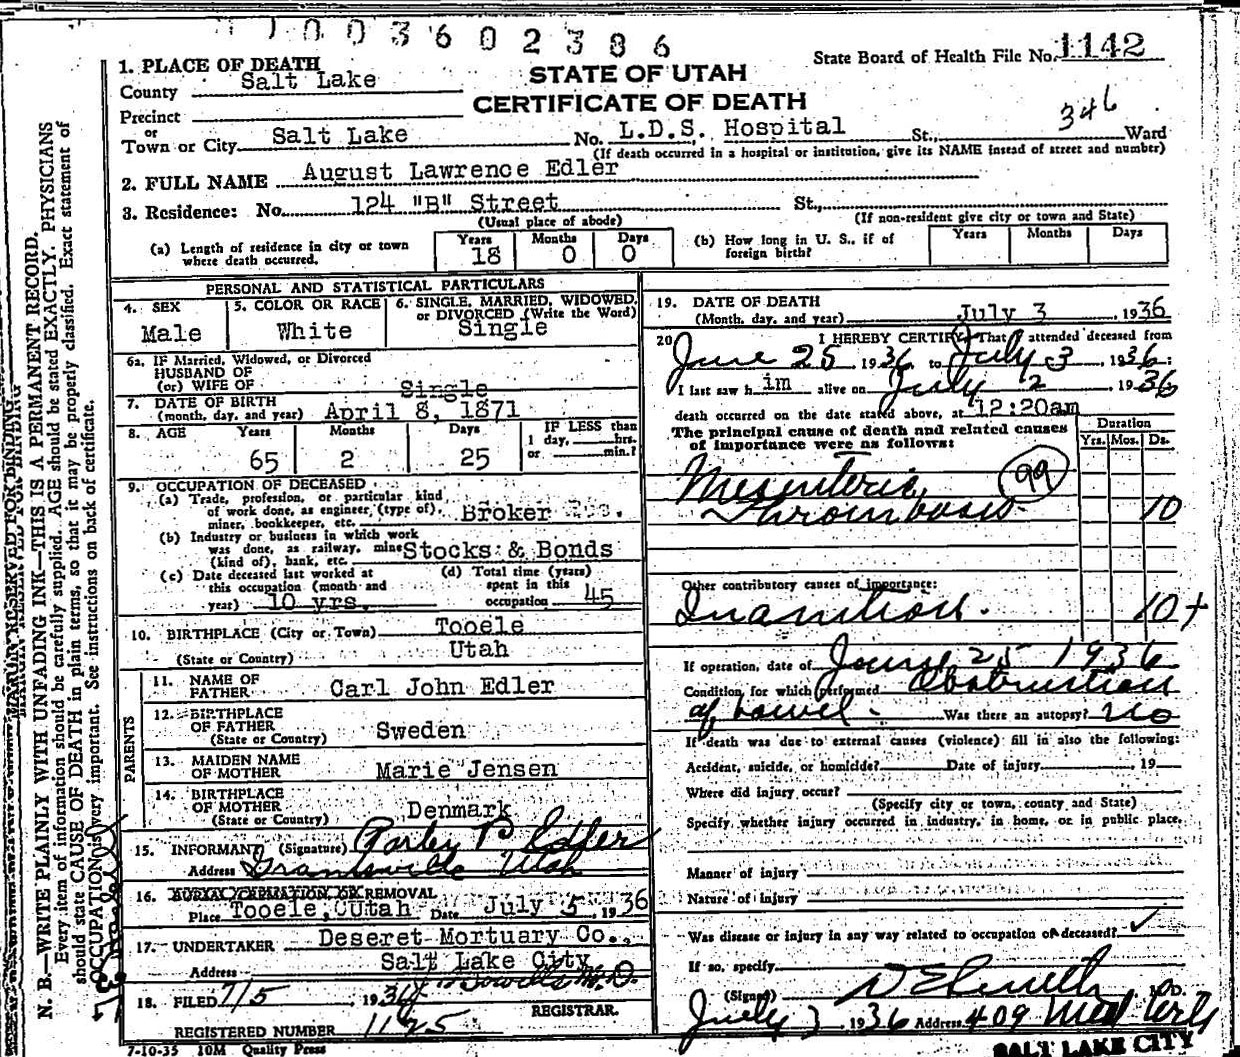 1003602386
State Board of Health File No. 1142
1. PLACE OF DEATH
STATE OF UTAH
County Salt Lake
CERTIFICATE OF DEATH
Precinct
or
346
Town or City Salt Lake No. L.D.S. Hospital St., Ward
(If death occurred in a hospital or institution, give its NAME instead of street and number)
2. FULL NAME August Lawrence Edler
3. Residence: No. 124 "B" Street St.,
(Usual place of abode) (If non-resident give city or town and State)
(a) Length of residence in city or town where death occurred. Years 18 Months 0 Days 0
(b) How long in U. S., if of foreign birth? Years Months Days
PERSONAL AND STATISTICAL PARTICULARS
4. SEX Male
5. COLOR OR RACE White
6. SINGLE, MARRIED, WIDOWED, or DIVORCED (Write the Word) Single
6a. IF Married, Widowed, or Divorced
HUSBAND OF
(or) WIFE OF Single
7. DATE OF BIRTH
(month, day, and year) April 8, 1871
8. AGE Years 65 Months 2 Days 25
IF LESS than 1 day, hrs. or min.?
9. OCCUPATION OF DECEASED
(a) Trade, profession, or particular kind
of work done, as engineer, (type of),
miner, bookkeeper, etc. Broker
(b) Industry or business in which work
was done, as railway, mine
(kind of), bank, etc. Stocks & Bonds
(c) Date deceased last worked at
this occupation (month and
year) 10 yrs.
(d) Total time (years)
spent in this
occupation 45
10. BIRTHPLACE (City or Town) Tooele
(State or Country) Utah
PARENTS
11. NAME OF
FATHER Carl John Edler
12. BIRTHPLACE
OF FATHER
(State or Country) Sweden
13. MAIDEN NAME
OF MOTHER Marie Jensen
14. BIRTHPLACE
OF MOTHER
(State or Country) Denmark
15. INFORMANT (Signature) Parley P Edler
Address Grantsville Utah
16. BURIAL, CREMATION OR REMOVAL
Place Tooele, Utah Date July 5, 1936
17. UNDERTAKER Deseret Mortuary Co.,
Address Salt Lake City
18. FILED 7/5, 1936 M.D.
REGISTRAR.
REGISTERED NUMBER 1125
7-10-35 10M Quality Press
19. DATE OF DEATH
(Month, day, and year) July 3 1936
20. I HEREBY CERTIFY, That I attended deceased from
June 25 1936 to July 3, 1936:
I last saw him alive on July 2 1936
death occurred on the date stated above, at 12:20am
The principal cause of death and related causes
of importance were as follows:
Duration
Yrs. Mos. Ds.
99
Mesenteric
Thrombosis 10
Other contributory causes of importance:
Inanition. 10+
If operation, date of June 25 1936
Condition for which performed Obstruction
of bowel. Was there an autopsy? no
If death was due to external causes (violence) fill in also the following:
Accident, suicide, or homicide? Date of injury 19
Where did injury occur?
(Specify city or town, county and State)
Specify whether injury occurred in industry, in home, or in public place.
Manner of injury
Nature of injury
Was disease or injury in any way related to occupation of deceased? ✓
If so, specify
(Signed) M.D.
July 3 1936 Address 409 Med
SALT LAKE CITY
MARGIN RESERVED FOR BINDING
N. B.—WRITE PLAINLY WITH UNFADING INK—THIS IS A PERMANENT RECORD.
Every item of information should be carefully supplied. AGE should be stated EXACTLY. PHYSICIANS
should state CAUSE OF DEATH in plain terms, so that it may be properly classified. Exact statement of
OCCUPATION is very important. See instructions on back of certificate.